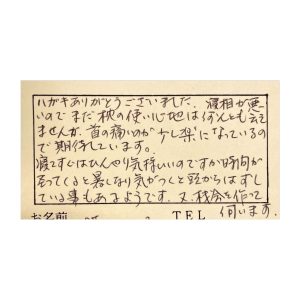 ハガキありがとうございました。寝相が悪
いのでまだ枕の使い心地は何とも言え
ませんが、首の痛いのが少し楽になっているの
で期待しています。
寝てすぐはひんやり気持いいのですが時間が
たってくると暑くなり気がつくと頭からはずし
ている事もあるようです。又、枕を作って
伺います。
お名前 TEL